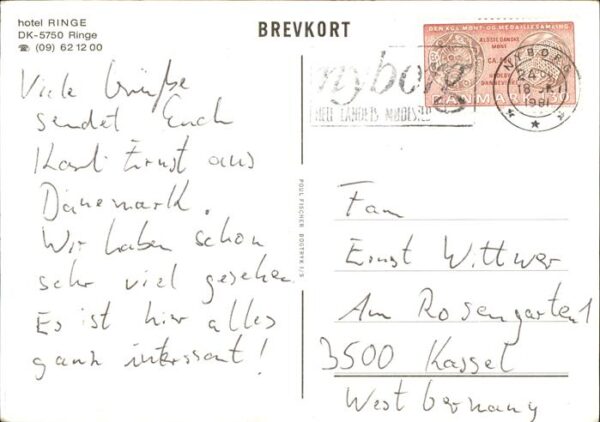 hotel RINGE
DK-5750 Ringe
☎ (09) 62 12 00
BREVKORT
DEN KGL. MØNT OG MEDAILLESAMLING
ÆLDSTE DANSKE
MØNT
CA.
DANMARK
nyborg
HELE LANDETS MØDESTED
NYBORG
24
18
1981
Viele Grüße
sendet Euch
Karl-Ernst aus
Dänemark.
Wir haben schon
sehr viel gesehen
Es ist hier alles
ganz interssant!
POUL FISCHER BOGTRYK I/S
Fam
Ernst Wittwer
Am Rosengarten 1
3500 Kassel
West Germany